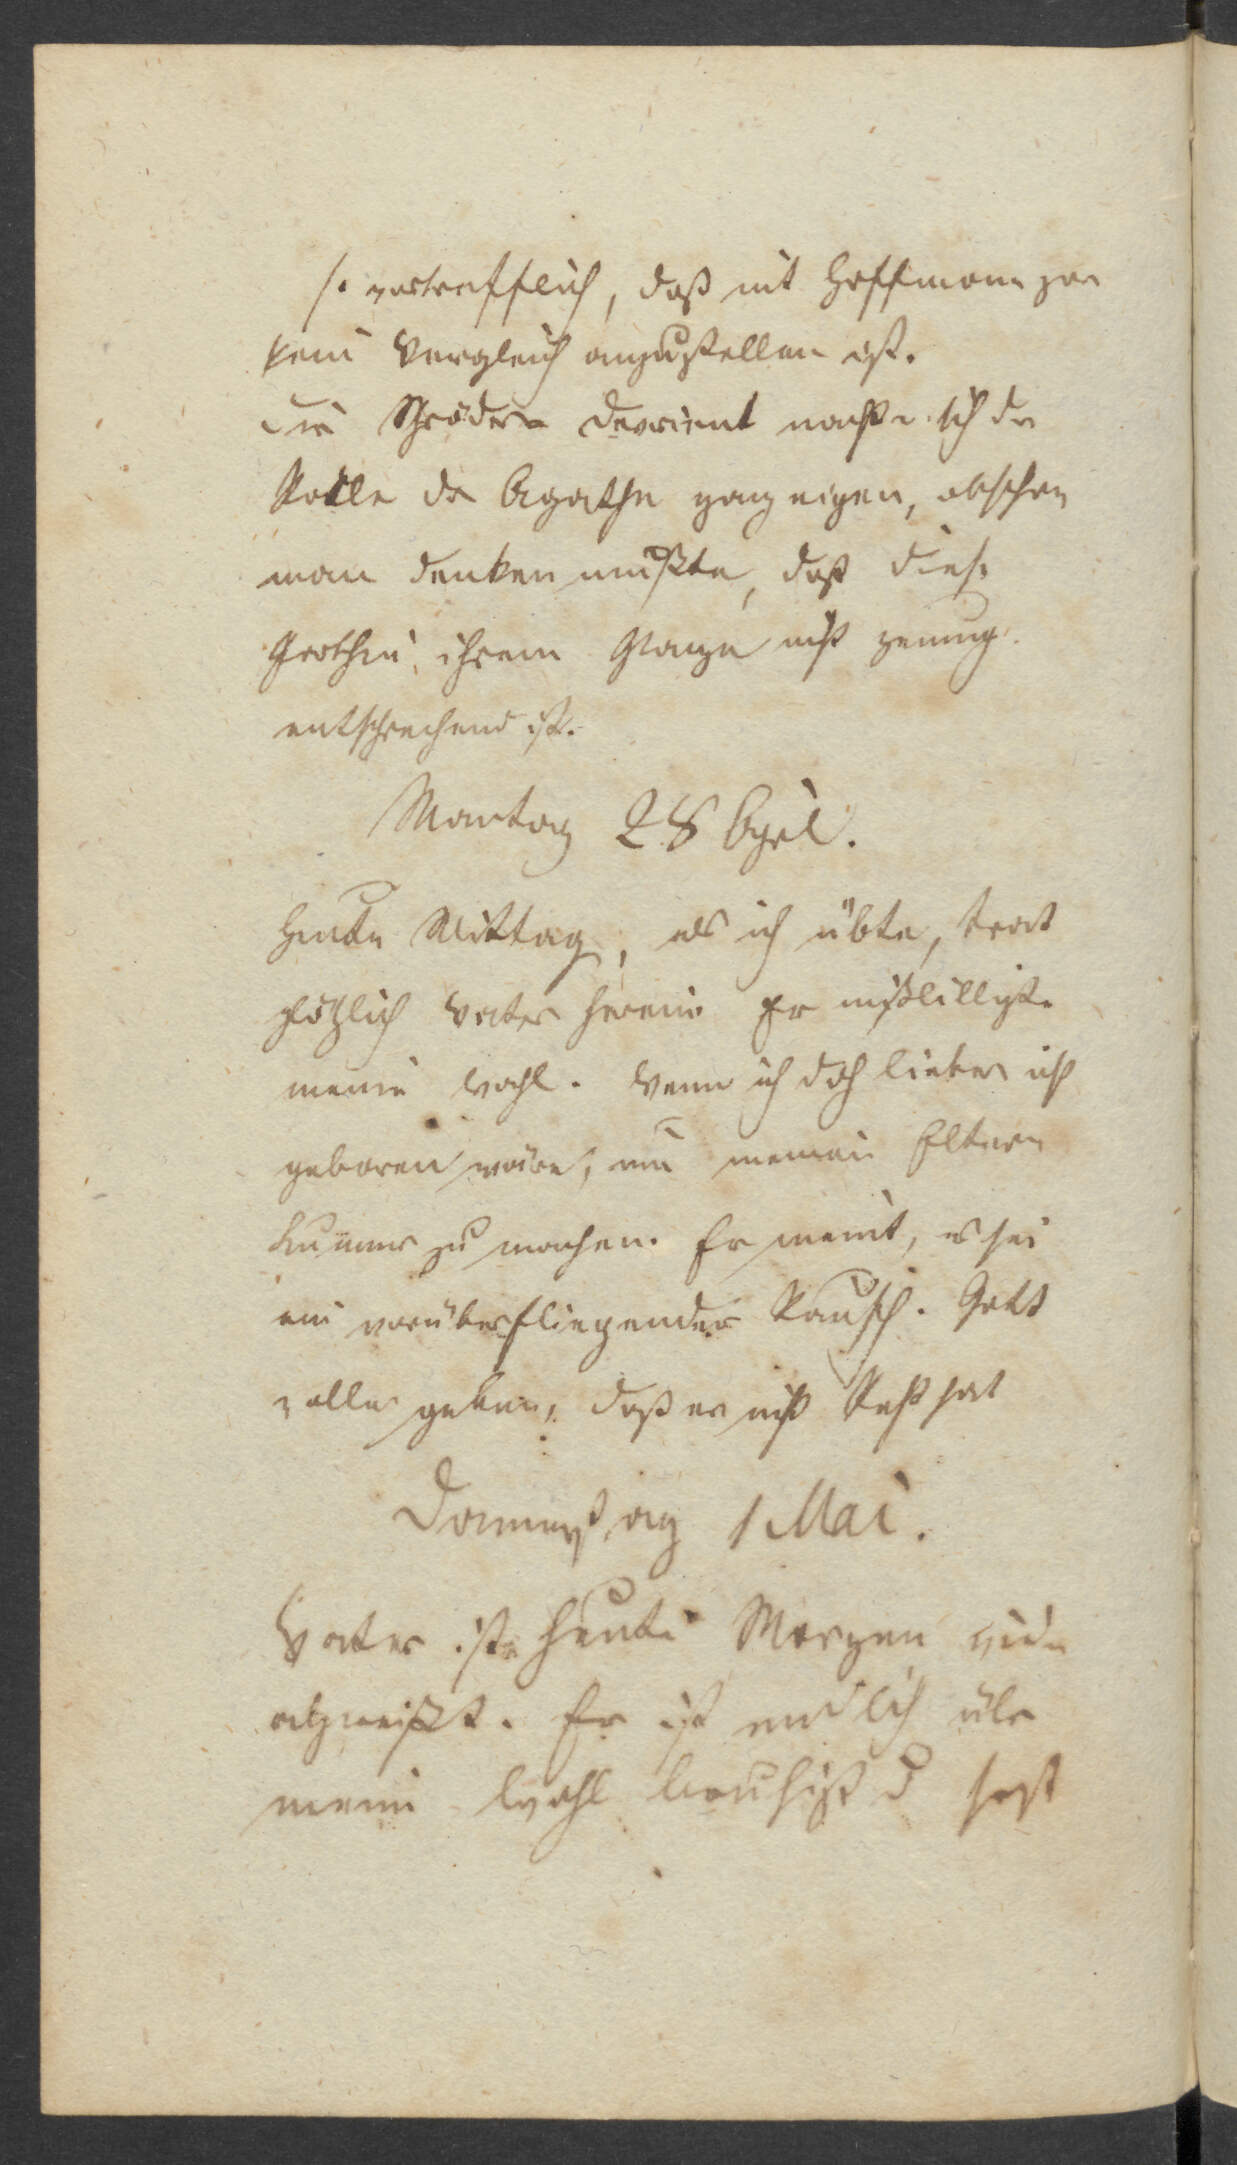 so vortrefflich, daß mit Hoffmann gar
kein Vergleich anzustellen ist.
Die Schröder Devrient machte sich die
Rolle der Agathe ganz eigen, obschon
man denken mußte, daß diese
Parthie ihrem Genre nicht genung
entsprechend ist.
Montag 28 April.
Heute Mittag, als ich übte, trat
plötzlich Vater herein Er mißbilligte
meine Wahl. Wenn ich doch lieber nicht
geboren wäre, um meinen Eltern
Kummer zu machen. Er meint, es sei
ein vorüberfliegender Rausch. Gott
wolle geben, daß er nicht Recht hat
Donnerstag 1 Mai.
Vater ist heute Morgen wieder
abgereißt. Er ist endlich über
meine Wahl beruhigt u hast